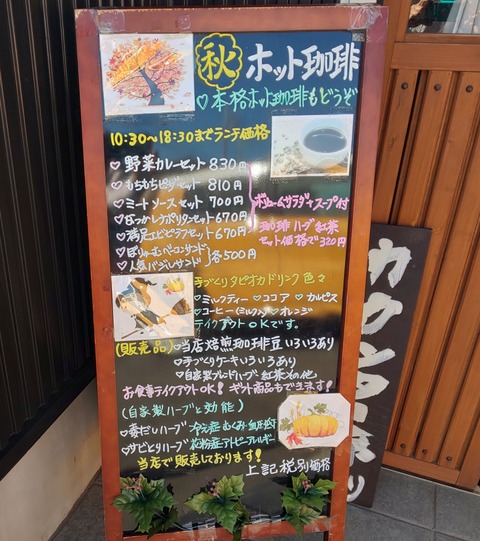 秋 ホット珈琲
♡本格ホット珈琲もどうぞ
10:30～18:30までランチ価格
♡野菜カレーセット 830円
♡もちもちピザセット 810円
♡ミートソースセット 700円
♡なつかしナポリタンセット 670円
♡満足エビピラフセット 670円
♡ぼりゅーむベーコンサンド
♡人気バジルサンド 各500円
ボリュームサラダ+スープ付
珈琲ハーブ紅茶
セット価格で320円
手づくりタピオカドリンク色々
♡ミルクティー ♡ココア ♡カルピス
♡コーヒー(ミルク入) ♡オレンジ
テイクアウトOKです。
(販売品)♡当店焙煎珈琲豆いろいろあり
♡手づくりケーキいろいろあり
♡自家製ブレンドハーブ紅茶その他
お食事テイクアウトOK! ギフト商品もできます!
(自家製ハーブと効能)
♡冷え症むくみ
♡サビとりハーブ 花粉症アトピーアレルギー
当店で販売しております!
上記税別価格
カウンター